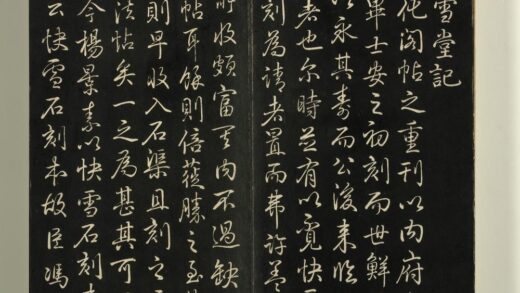 雪堂記
化閣帖之重刊以内府
畢士安之初刻而世鮮
以永其壽而公後来临
者也尔時並有以覓快
刻為請者置而弗許盖
所收頗富 内不過缺
帖耳餘則倍蓰勝之至
則早收入石渠且刻之
法帖矣一之為甚其可
今楊景素以快雪石刻
快雪石刻本故臣馮